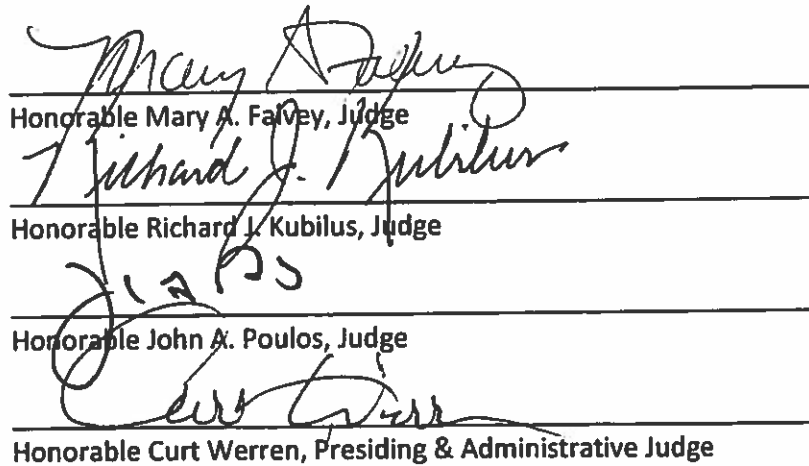 Mary A Falvey
Honorable Mary A. Falvey, Judge
Richard J. Kubilus
Honorable Richard J. Kubilus, Judge
Honorable John A. Poulos, Judge
Curt Werren
Honorable Curt Werren, Presiding & Administrative Judge